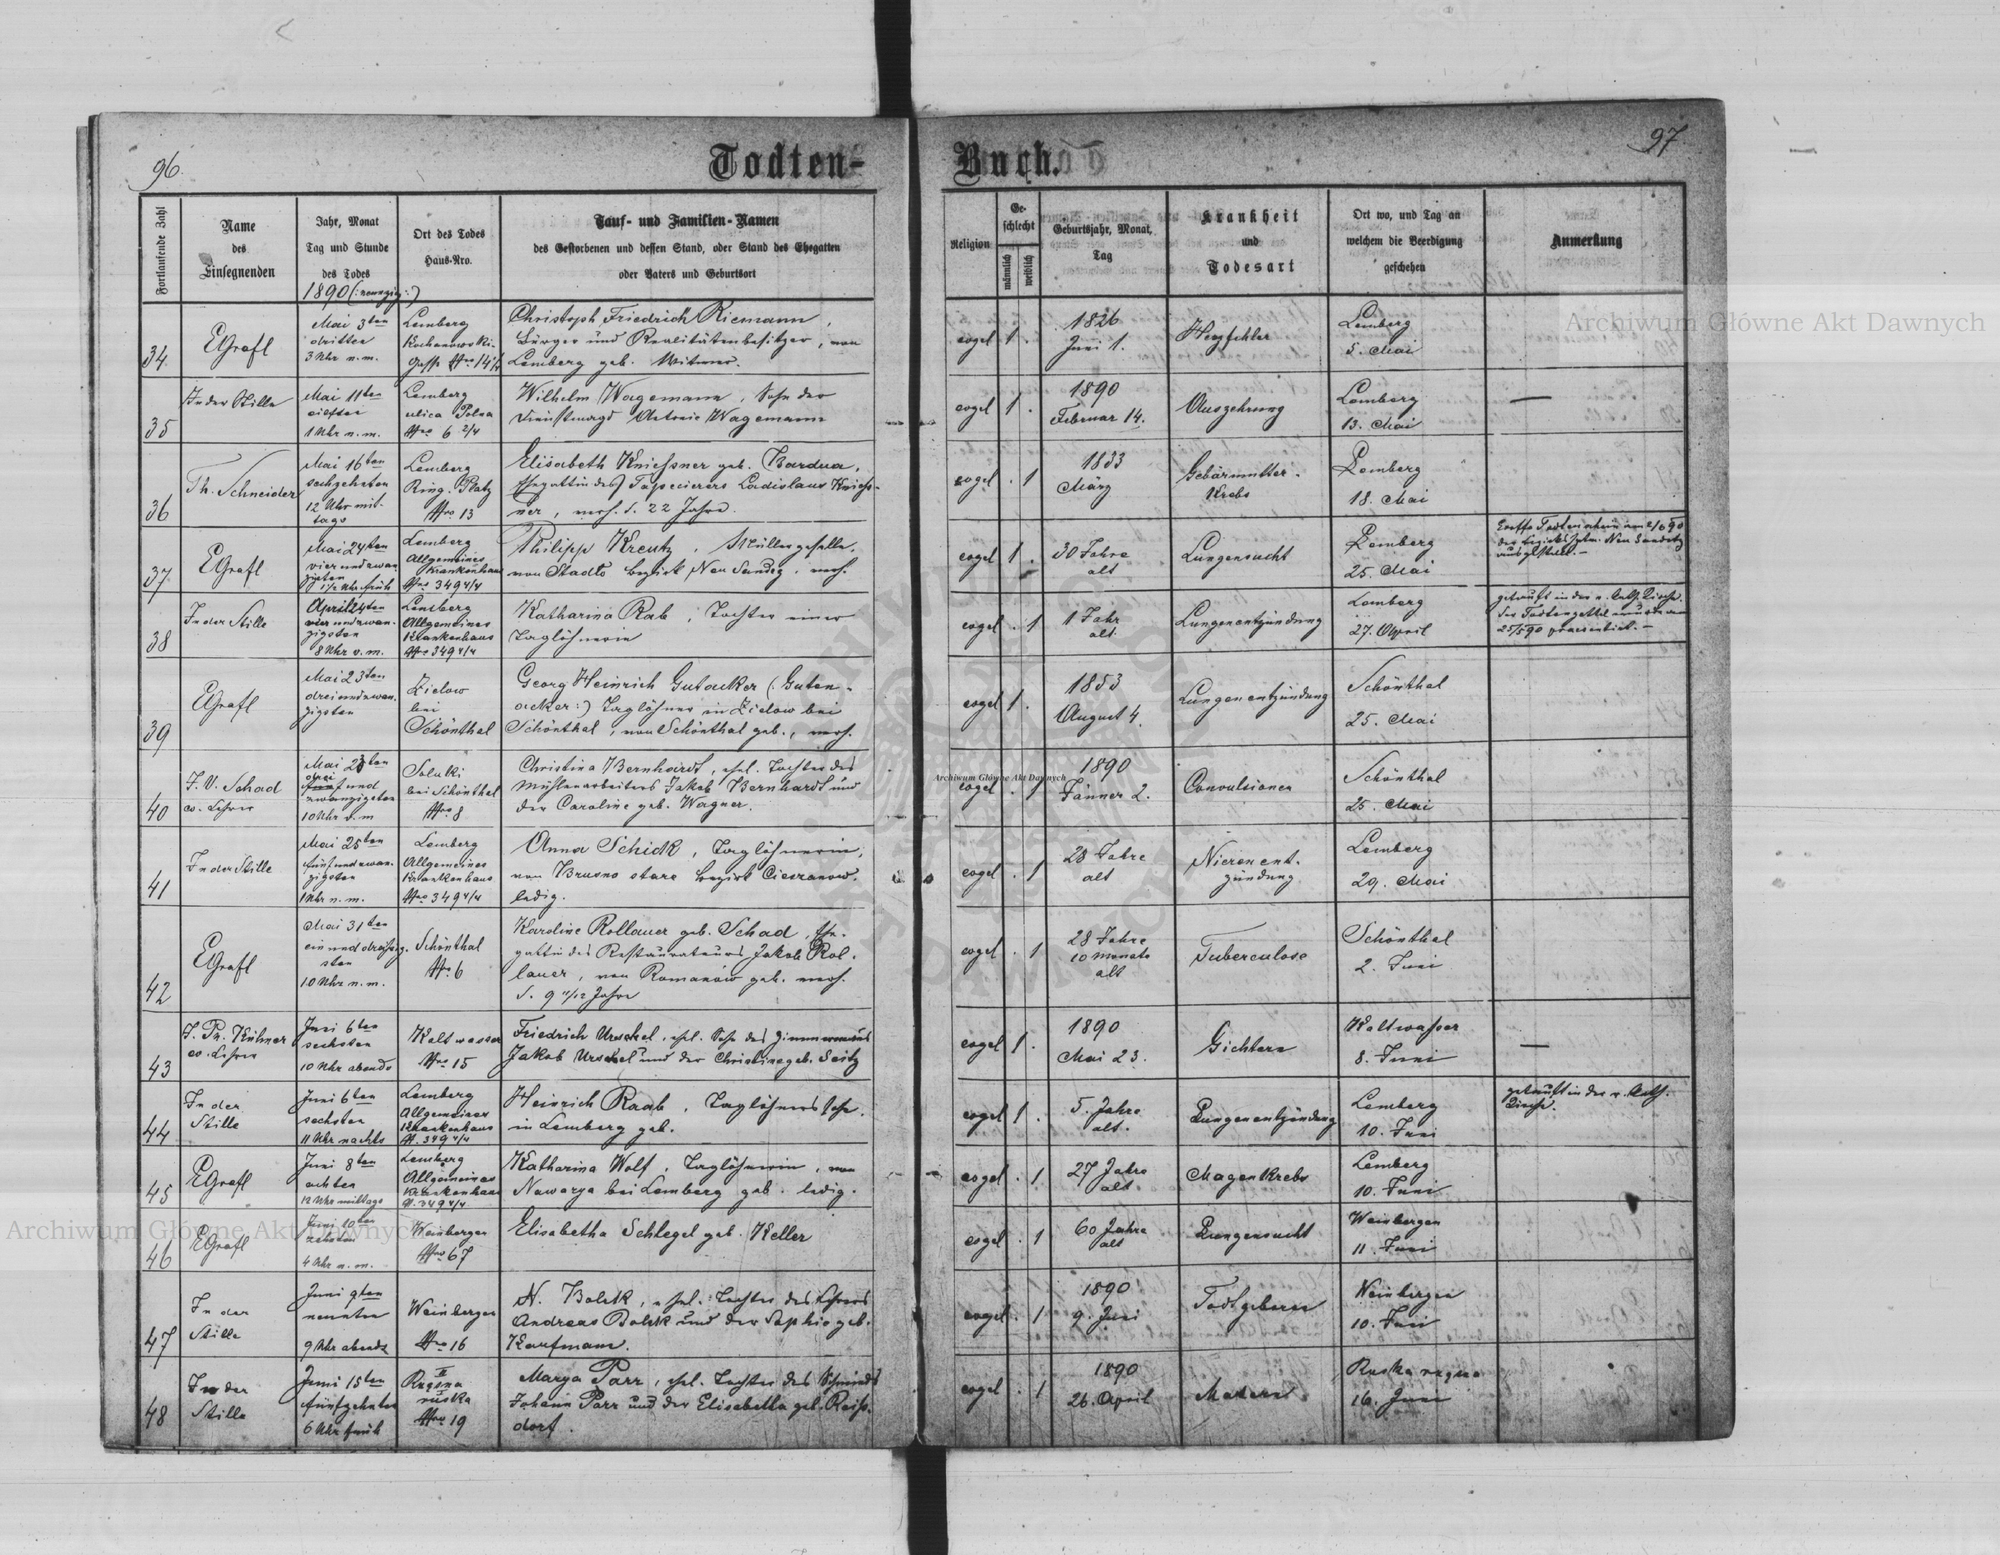 96.
Todten-
Buch.
97
Fortlaufende Zahl
Name
des
Einsegnenden
Jahr, Monat
Tag und Stunde
des Todes
1890 (:neunzig:)
Ort des Todes
Haus-Nro.
Tauf- und Familien-Namen
des Gestorbenen und dessen Stand, oder Stand des Ehegatten
oder Vaters und Geburtsort
Religion
Ge-
schlecht
männlich
weiblich
Geburtsjahr, Monat,
Tag
Krankheit
und
Todesart
Ort wo, und Tag an
welchem die Beerdigung
geschehen
Anmerkung
34.
EGrafl
Mai 3ten
dritten
3 Uhr n. m.
Lemberg
Kochanowski-
Gasse Nro 14
Christoph Friedrich Riemann,
Bürger und Realitätenbesitzer, von
Lemberg geb. Witwer.
evgel
1
1826
Juni 1.
Herzfehler
Lemberg
5. Mai
35
In der Stille
Mai 11ten
eilften
1 Uhr n. m.
Lemberg
ulica Polna
Nro 6 2/4
Wilhelm Wagemann, Sohn der
Dienstmagd Antonie Wagemann
evgel
1 .
1890
Februar 14.
Auszehrung
Lemberg
13. Mai
—
36
Th. Schneider
Mai 16ten
sechzehnten
12 Uhr mit-
tags
Lemberg
Ring-Platz
Nro 13
Elisabeth Kniessner geb. Bardua,
Ehegattin des Tapecierers Ladislaus Kniess-
ner, verh. s. 22 Jahre.
evgel
. 1
1833
März
Gebärmutter-
Krebs
Lemberg
18. Mai
37
EGrafl
Mai 24ten
vierundzwan
zigsten
Uhr früh
Lemberg
Allgemeines
Krankenhaus
Nro 349 4/4
Philipp Kreutz, Müllergeselle,
von Stadlo Bezirk Neu Sandez, verh.
evgel
1 .
30 Jahre
alt
Lungensucht
Lemberg
25. Mai
Todtenschein am
Neu Sandetz
ausgestellt. —
38
In der Stille
April 24ten
vierundzwan-
zigsten
8 Uhr v. m.
Lemberg
Allgemeines
Krankenhaus
Nro 349 4/4
Katharina Rab, Tochter einer
Taglöhnerin
evgel
. 1
1 Jahr
alt.
Lungenentzündung
Lemberg
27. April
getauft in der r. kath. Kirche.
Der Todtenzettel wurde am
25/5 90 praesentirt. —
39
EGrafl
Mai 23ten
dreiundzwan-
zigsten
Zielow
bei
Schönthal
Georg Heinrich Gutacker (:Guten-
acker:) Taglöhner in Zielow bei
Schönthal, von Schönthal geb., verh.
evgel
1 .
1853
August 4.
Lungenentzündung
Schönthal
25. Mai
40
J. V. Schad
ev. Lehrer
Mai 23ten
drei
fünf und
zwanzigsten
10 Uhr v. m
Saluki
bei Schönthal
Nro 8
Christina Bernhardt, ehel. Tochter des
Mühlenarbeiters Jakob Bernhardt und
der Caroline geb. Wagner.
evgel
. 1
1890
Jänner 2.
Convulsionen
Schönthal
25. Mai
41
In der Stille
Mai 25ten
fünfundzwan-
zigsten
1 Uhr n. m.
Lemberg
Allgemeines
Krankenhaus
Nro 349 4/4
Anna Schick, Taglöhnerin,
von Brusno stare Bezirk Cieszanow.
ledig.
evgel
. 1
28 Jahre
alt
Nierenent-
zündung
Lemberg
29. Mai
42
EGrafl
Mai 31ten
ein und dreissig-
sten
10 Uhr n. m.
Schönthal
Nro 6
Karoline Rollauer geb. Schad, Ehe-
gattin des Restaurateurs Jakob Rol-
lauer, von Romanów geb. verh.
s. 9 11/12 Jahre
evgel
. 1
28 Jahre
10 Monate
alt
Tuberculose
Schönthal
2. Juni
43
J. Ph. Kühner
ev. Lehrer
Juni 6ten
sechsten
10 Uhr abends
Kaltwasser
Nro 15
Friedrich Urschel, ehel. Sohn des Zimmermanns
Jakob Urschel und der Christine geb. Seitz
evgel
1 .
1890
Mai 23.
Gichtern
Kaltwasser
8. Juni
—
44
In der
Stille
Juni 6ten
sechsten
11 Uhr nachts
Lemberg
Allgemeines
Krankenhaus
N. 349 4/4
Heinrich Raab, Taglöhners Sohn.
in Lemberg geb.
evgel
1 .
5. Jahre
alt.
Lungenentzündung
Lemberg
10. Juni
getauft in der r. kath.
Kirche.
45
EGrafl
Juni 8ten
achten
12 Uhr mittags
Lemberg
Allgemeines
Krankenhaus
N. 349 4/4
Katharina Wolf, Taglöhnerin, von
Nawarya bei Lemberg geb. ledig.
evgel
. 1
27 Jahre
alt.
Magenkrebs
Lemberg
10. Juni
46
EGrafl
Juni 10ten
zehnten
4 Uhr n. m.
Weinbergen
Nro 67
Elisabetha Schlegel geb. Keller
evgel
. 1
60 Jahre
alt
Lungensucht
Weinbergen
11. Juni
47
In der
Stille
Juni 9ten
neunten
9 Uhr abends
Weinbergen
Nro 16
N. Bolek, ehel. Tochter des Lehrers
Andreas Bolek und der Sophie geb.
Kaufmann.
evgel
. 1
1890
9. Juni
Todtgeboren
Weinbergen
10. Juni
48
In der
Stille
Juni 15ten
fünfzehnten
6 Uhr früh
Rzęsna
ruska
Nro 19
Marya Parr, ehel. Tochter des Schmieds
Johann Parr und der Elisabetha geb. Reiss-
dorf.
evgel
. 1
1890
26. April
Masern
Ruska rzęsna
16. Juni
Archiwum Główne Akt Dawnych
Archiwum Główne Akt Dawnych
Archiwum Główne Akt Dawnych